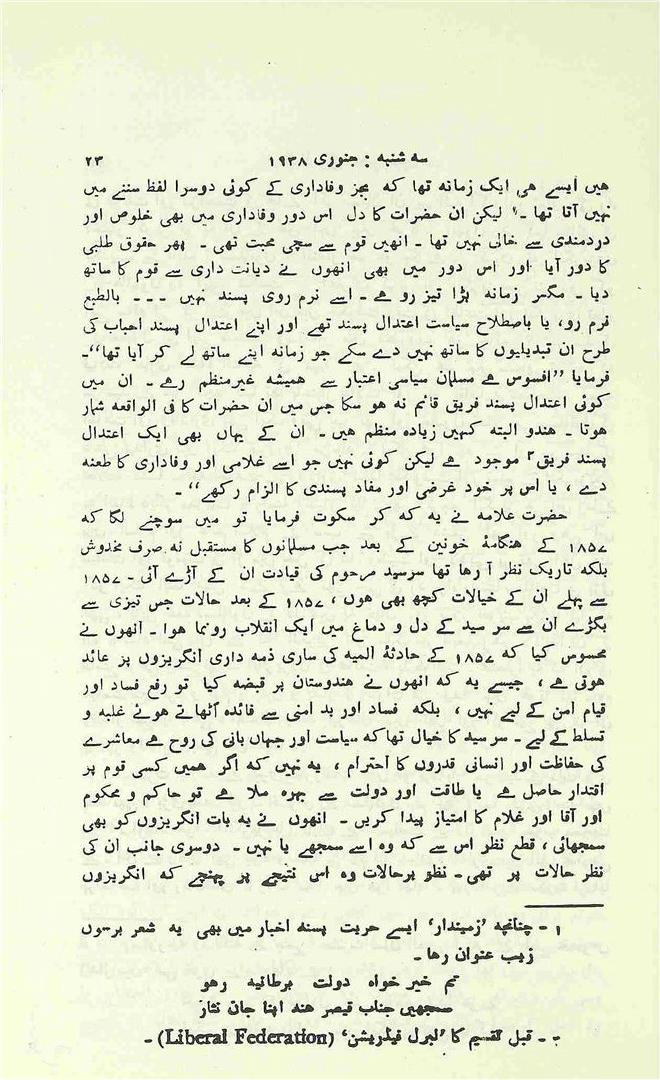 سه شنبه : جنوری ۱۹۳۸ ۲۳
هیں ایسے هی ایک زمانه تھا که بجز وفاداری کے کوئی دوسرا لفظ سننے میں
نہیں آتا تھا ۔۱ لیکن ان حضرات کا دل اس دور وفاداری میں بھی خلوص اور
دردمندی سے خالی نہیں تھا ۔ انھیں قوم سے سچی محبت تھی ۔ پھر حقوق طلبی
کا دور آیا اور اس دور میں بھی انھوں نے دیانت داری سے قوم کا ساتھ
دیا ۔ مگر زمانه بڑا تیز رو هے ۔ اسے نرم روی پسند نہیں ۔۔۔ بالطبع
نرم رو، یا باصطلاح سیاست اعتدال پسند تھے اور اپنے اعتدال پسند احباب کی
طرح ان تبدیلیوں کا ساتھ نہیں دے سکے جو زمانه اپنے ساتھ لے کر آیا تھا‘‘۔
فرمایا ’’افسوس هے مسلمان سیاسی اعتبار سے همیشه غیر منظم رهے ۔ ان میں
کوئی اعتدال پسند فریق قائم نه هو سکا جس میں ان حضرات کا فی الواقعه شمار
هوتا ۔ هندو البته کہیں زیاده منظم هیں ۔ ان کے یہاں بھی ایک اعتدال
پسند فریق۲ موجود هے لیکن کوئی نہیں جو اسے غلامی اور وفاداری کا طعنه
دے ، یا اس پر خود غرضی اور مفاد پسندی کا الزام رکھے‘‘ ۔
حضرت علامه نے یه که کر سکوت فرمایا تو میں سوچنے لگا که
۱۸۵۷ کے هنگامۀ خونین کے بعد جب مسلمانوں کا مستقبل نه صرف مخدوش
بلکه تاریک نظر آ رها تھا سرسید مرحوم کی قیادت ان کے آڑے آئی ۔ ۱۸۵۷
سے پہلے ان کے خیالات کچھ بھی هوں ، ۱۸۵۷ کے بعد حالات جس تیزی سے
بگڑے ان سے سر سید کے دل و دماغ میں ایک انقلاب رونما هوا ۔ انھوں نے
محسوس کیا که ۱۸۵۷ کے حادثۀ المیه کی ساری ذمه داری انگریزوں پر عائد
هوتی هے ، جیسے یه که انھوں نے هندوستان پر قبضه کیا تو رفع فساد اور
قیام امن کے لیے نہیں ، بلکه فساد اور بد امنی سے فائده اٹھاتے هوئے غلبه و
تسلط کے لیے ۔ سر سید کا خیال تھا که سیاست اور جہاں بانی کی روح هے معاشرے
کی حفاظت اور انسانی قدروں کا احترام ، یه نہیں که اگر همیں کسی قوم پر
اقتدار حاصل هے یا طاقت اور دولت سے بہره ملا هے تو حاکم و محکوم
اور آقا اور غلام کا امتیاز پیدا کریں ۔ انھوں نے یه بات انگریزوں کو بھی
سمجھائی ، قطع نظر اس سے که وه اسے سمجھے یا نہیں ۔ دوسری جانب ان کی
نظر حالات پر تھی ۔ نظر برحالات وه اس نتیجے پر پہنچے که انگریزوں
۱ ۔ چنانچه ’زمیندار‘ ایسے حریت پسند اخبار میں بھی یه شعر برسوں
زیب عنوان رها ۔
تم خیر خواه دولت برطانیه رهو
سمجھیں جناب قیصر هند اپنا جان نثار
۲ ۔ قبل تقسیم کا ’لبرل فیڈریشن‘ (Liberal Federation) ۔